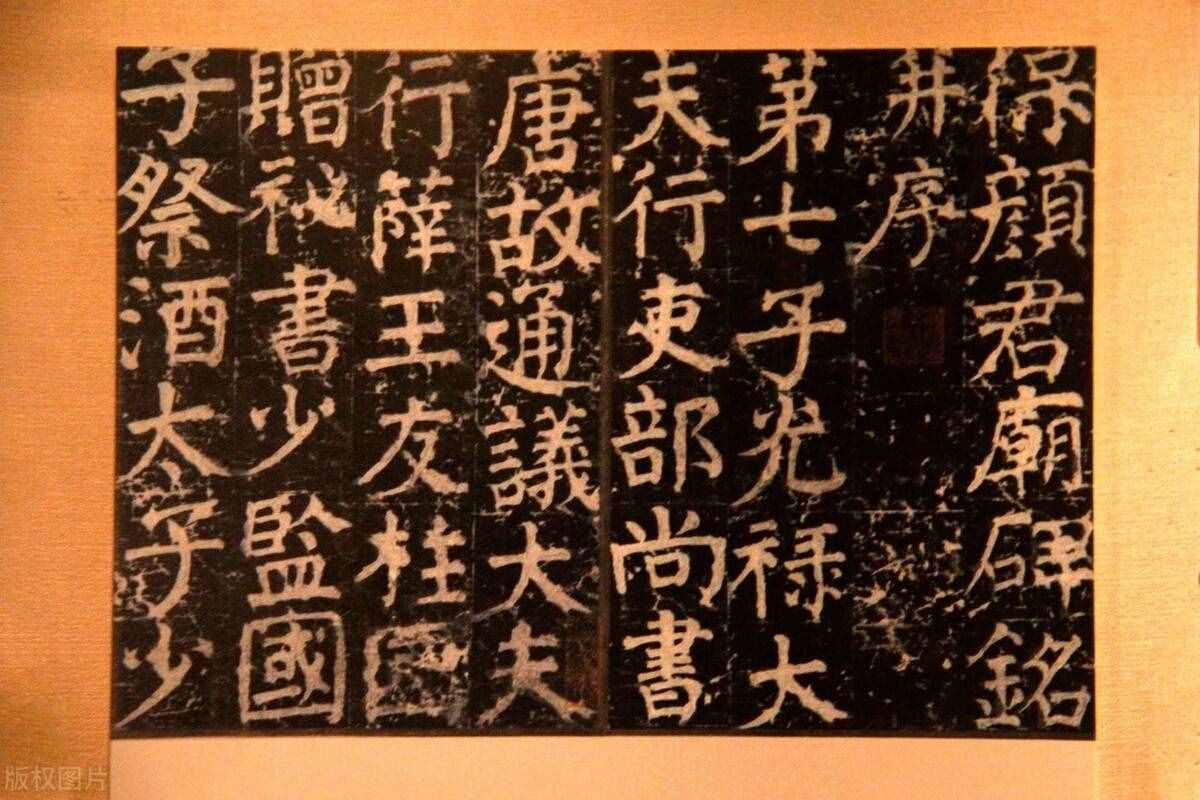 保顔君廟碑銘
并序
第七子光禄大
夫行吏部尚書
唐故通議大夫
行薛王友柱國
贈祕書少監國
子祭酒太子少
版权图片